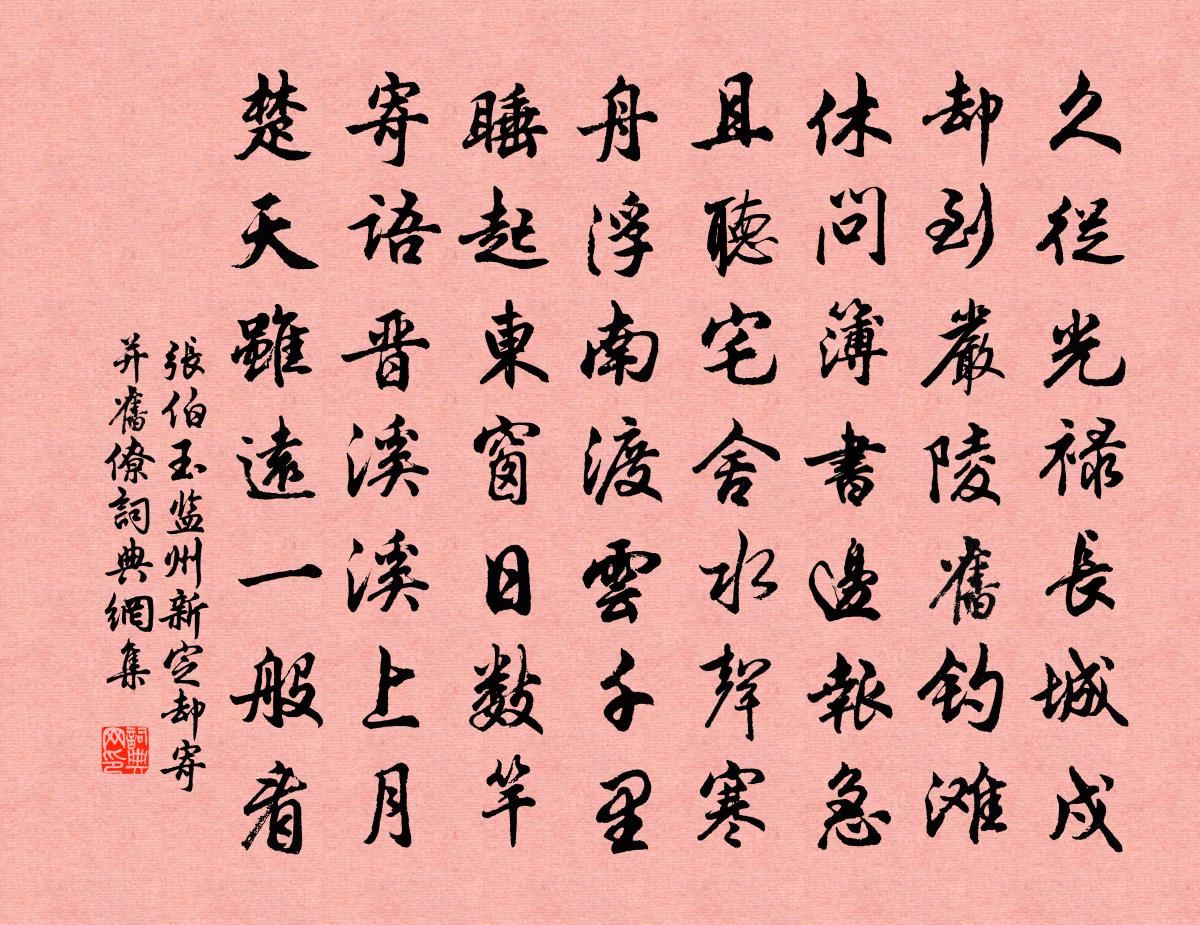 久從光禄長城戍
却到嚴陵舊釣滩
休問簿書邊報急
且聽宅舍水聲寒
舟浮南渡雲千里
睡起東窗日數竿
寄語晋溪溪上月
楚天雖遠一般看
張伯玉监州新定却寄
并舊僚詞典網集
詞典网印